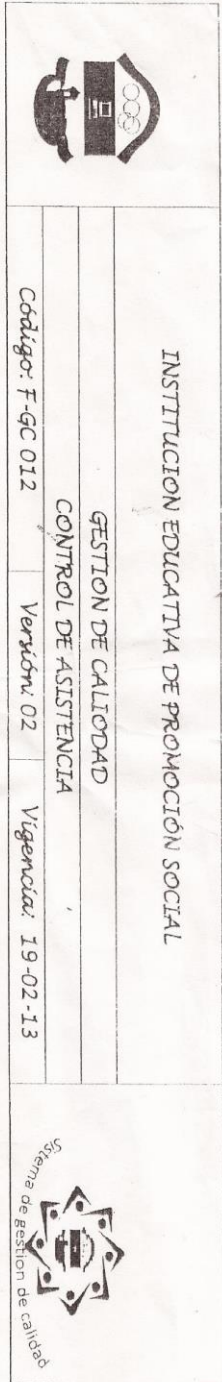 INSTITUCION EDUCATIVA DE PROMOCIÓN SOCIAL
GESTION DE CALIODAD
CONTROL DE ASISTENCIA
Código: F-GC 012 Versión: 02 Vigencia: 19-02-13
Sistema de gestion de calidad